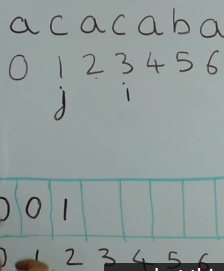 a c a c a b a
0 1 2 3 4 5 6
j i
0 0 1
0 1 2 3 4 5 6